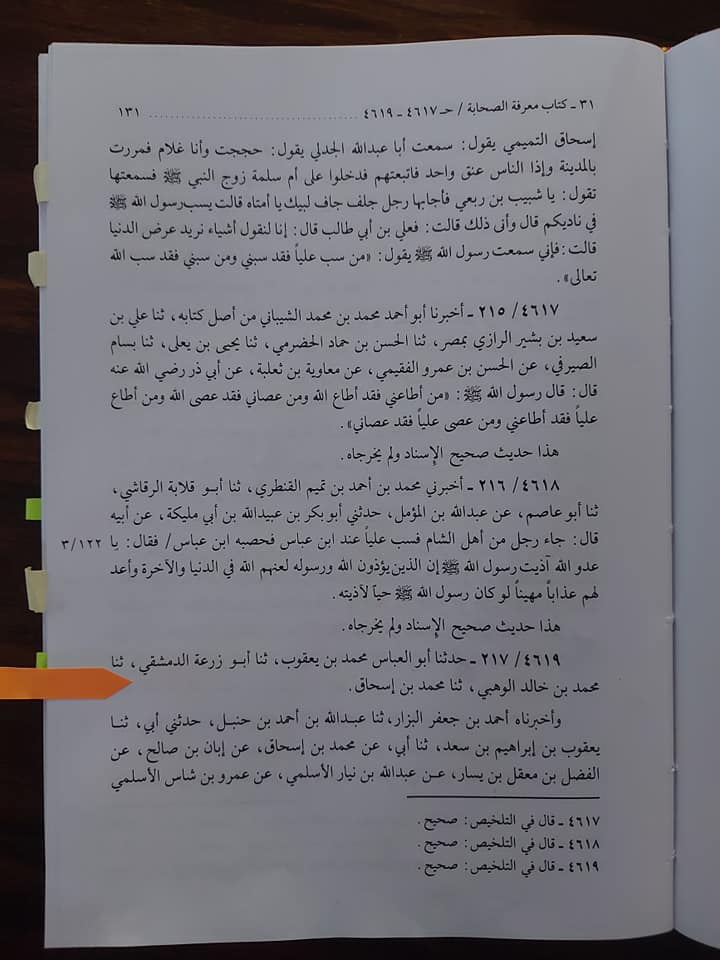 ٣١ - كتاب معرفة الصحابة / حـ ٤٦١٧ - ٤٦١٩ ........................ ١٣١
إسحاق التميمي يقول: سمعت أبا عبدالله الجدلي يقول: حججت وأنا غلام فمررت
بالمدينة وإذا الناس عنق واحد فاتبعتهم فدخلوا على أم سلمة زوج النبي ﷺ فسمعتها
تقول: يا شبيب بن ربعي فأجابها رجل جلف جاف لبيك يا أمتاه قالت يسب رسول الله ﷺ
في ناديكم قال وأنى ذلك قالت: فعلي بن أبي طالب قال: إنا لنقول أشياء نريد عرض الدنيا
قالت: فإني سمعت رسول الله ﷺ يقول: «من سب علياً فقد سبني ومن سبني فقد سب الله
تعالى».
٤٦١٧/ ٢١٥ - أخبرنا أبو أحمد محمد بن محمد الشيباني من أصل كتابه، ثنا علي بن
سعيد بن بشير الرازي بمصر، ثنا الحسن بن حماد الحضرمي، ثنا يحيى بن يعلى، ثنا بسام
الصيرفي، عن الحسن بن عمرو الفقيمي، عن معاوية بن ثعلبة، عن أبي ذر رضي الله عنه
قال: قال رسول الله ﷺ: «من أطاعني فقد أطاع الله ومن عصاني فقد عصى الله ومن أطاع
علياً فقد أطاعني ومن عصى علياً فقد عصاني».
هذا حديث صحيح الإسناد ولم يخرجاه.
٤٦١٨/ ٢١٦ - أخبرني محمد بن أحمد بن تميم القنطري، ثنا أبو قلابة الرقاشي،
ثنا أبو عاصم، عن عبدالله بن المؤمل، حدثني أبو بكر بن عبيدالله بن أبي مليكة، عن أبيه
قال: جاء رجل من أهل الشام فسب علياً عند ابن عباس فحصبه ابن عباس/ فقال: يا ٣/١٢٢
عدو الله آذيت رسول الله ﷺ إن الذين يؤذون الله ورسوله لعنهم الله في الدنيا والآخرة وأعد
لهم عذاباً مهيناً لو كان رسول الله ﷺ حياً لآذيته.
هذا حديث صحيح الإسناد ولم يخرجاه.
٤٦١٩/ ٢١٧ - حدثنا أبو العباس محمد بن يعقوب، ثنا أبو زرعة الدمشقي، ثنا
محمد بن خالد الوهبي، ثنا محمد بن إسحاق.
وأخبرناه أحمد بن جعفر البزار، ثنا عبدالله بن أحمد بن حنبل، حدثني أبي، ثنا
يعقوب بن إبراهيم بن سعد، ثنا أبي، عن محمد بن إسحاق، عن إبان بن صالح، عن
الفضل بن معقل بن يسار، عن عبدالله بن نيار الأسلمي، عن عمرو بن شاس الأسلمي
٤٦١٧ - قال في التلخيص: صحيح.
٤٦١٨ - قال في التلخيص: صحيح.
٤٦١٩ - قال في التلخيص: صحيح.